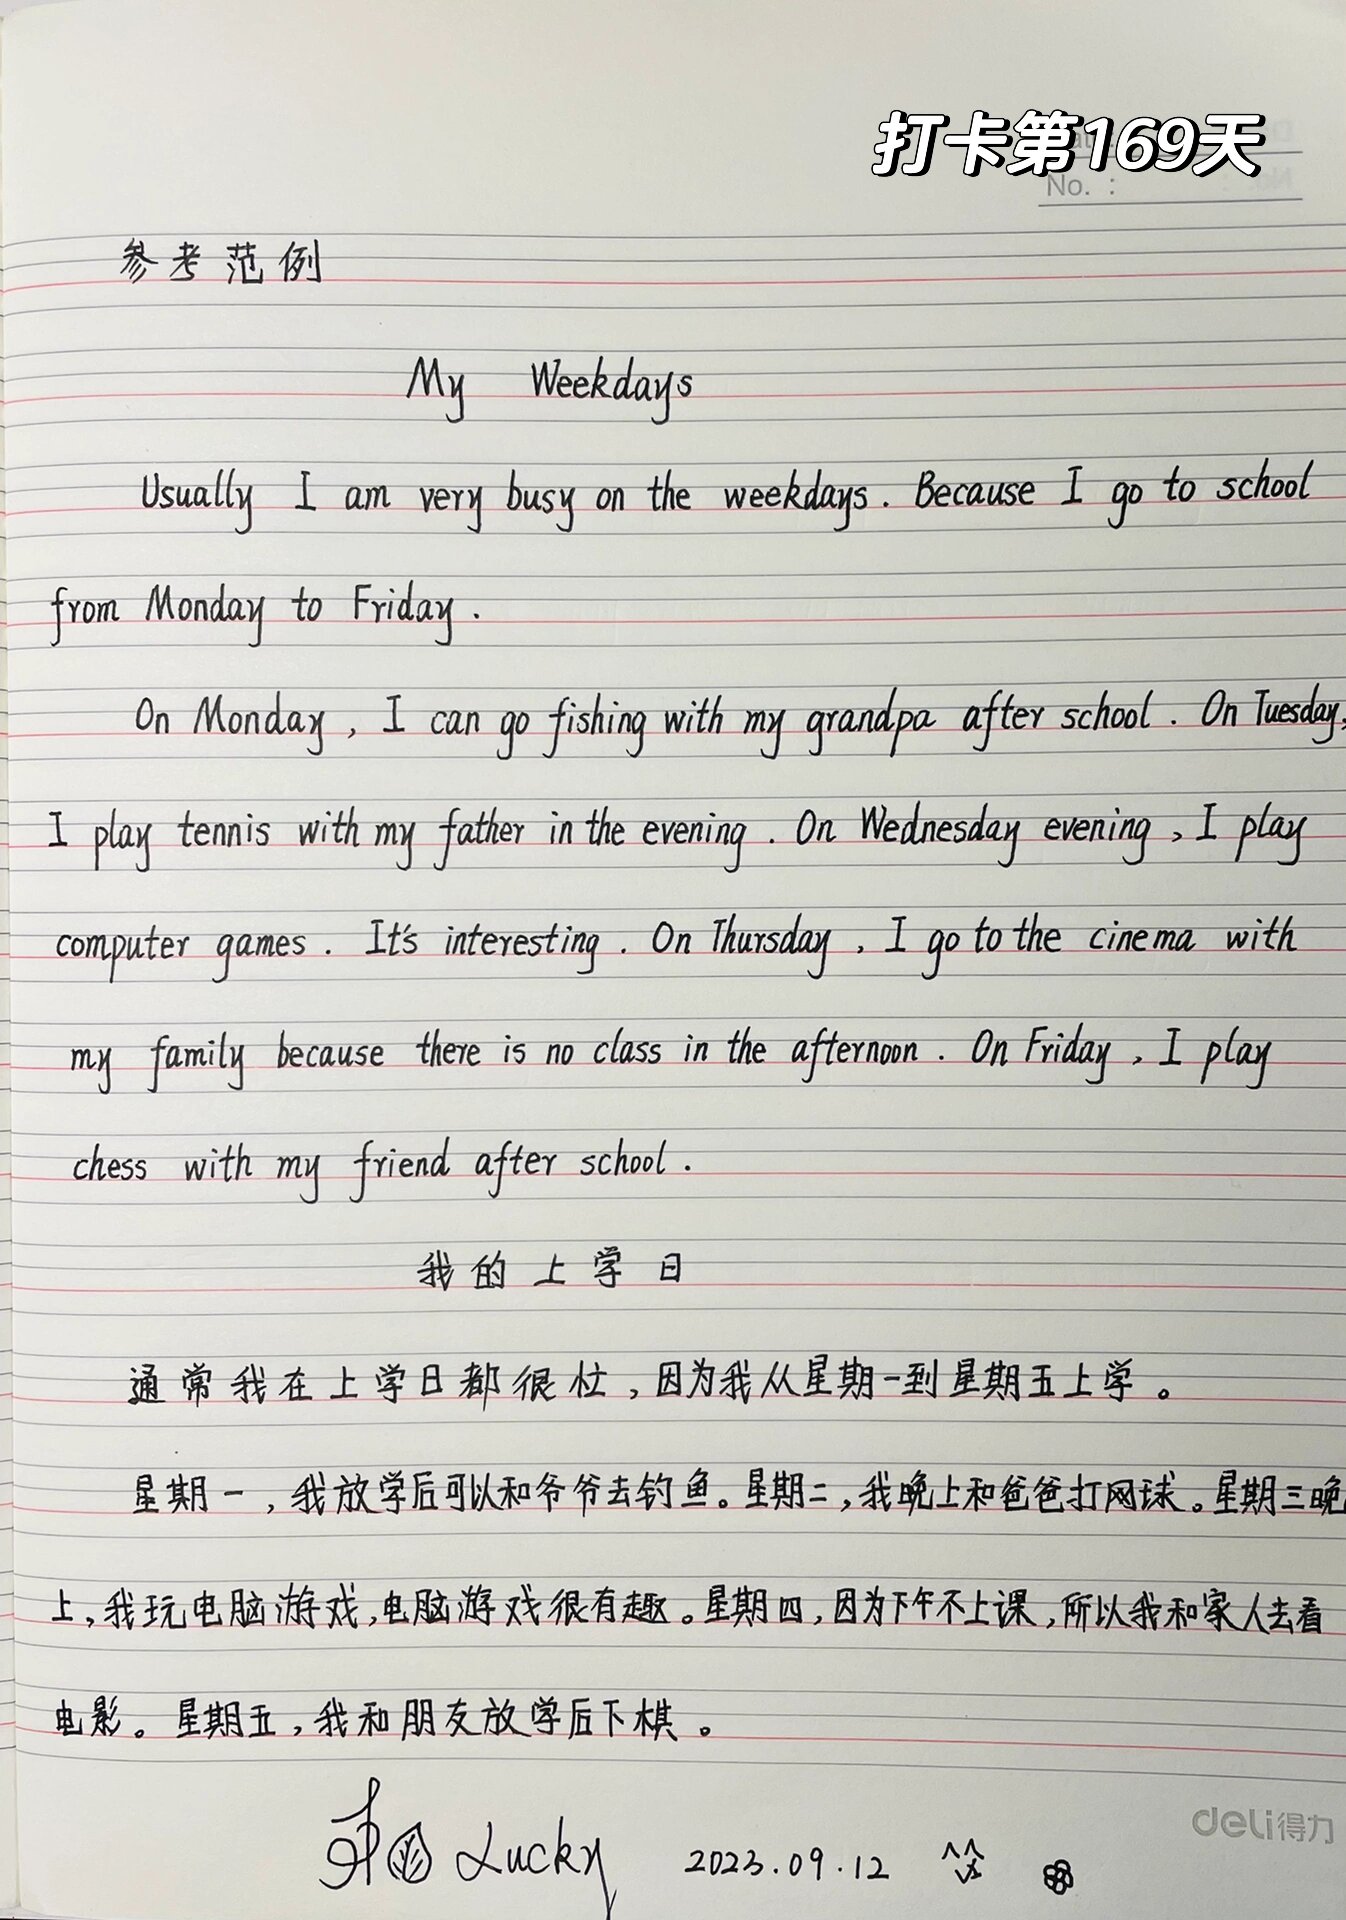 打卡第169天
No. :
参考范例
My Weekdays
Usually I am very busy on the weekdays. Because I go to school
from Monday to Friday.
On Monday, I can go fishing with my grandpa after school. On Tuesday,
I play tennis with my father in the evening. On Wednesday evening, I play
computer games. It's interesting. On Thursday, I go to the cinema with
my family because there is no class in the afternoon. On Friday, I play
chess with my friend after school.
我的上学日
通常我在上学日都很忙，因为我从星期一到星期五上学。
星期一，我放学后可以和爷爷去钓鱼。星期二，我晚上和爸爸打网球。星期三晚
上，我玩电脑游戏，电脑游戏很有趣。星期四，因为下午不上课，所以我和家人去看
电影。星期五，我和朋友放学后下棋。
Lucky 2023.09.12
deli得力